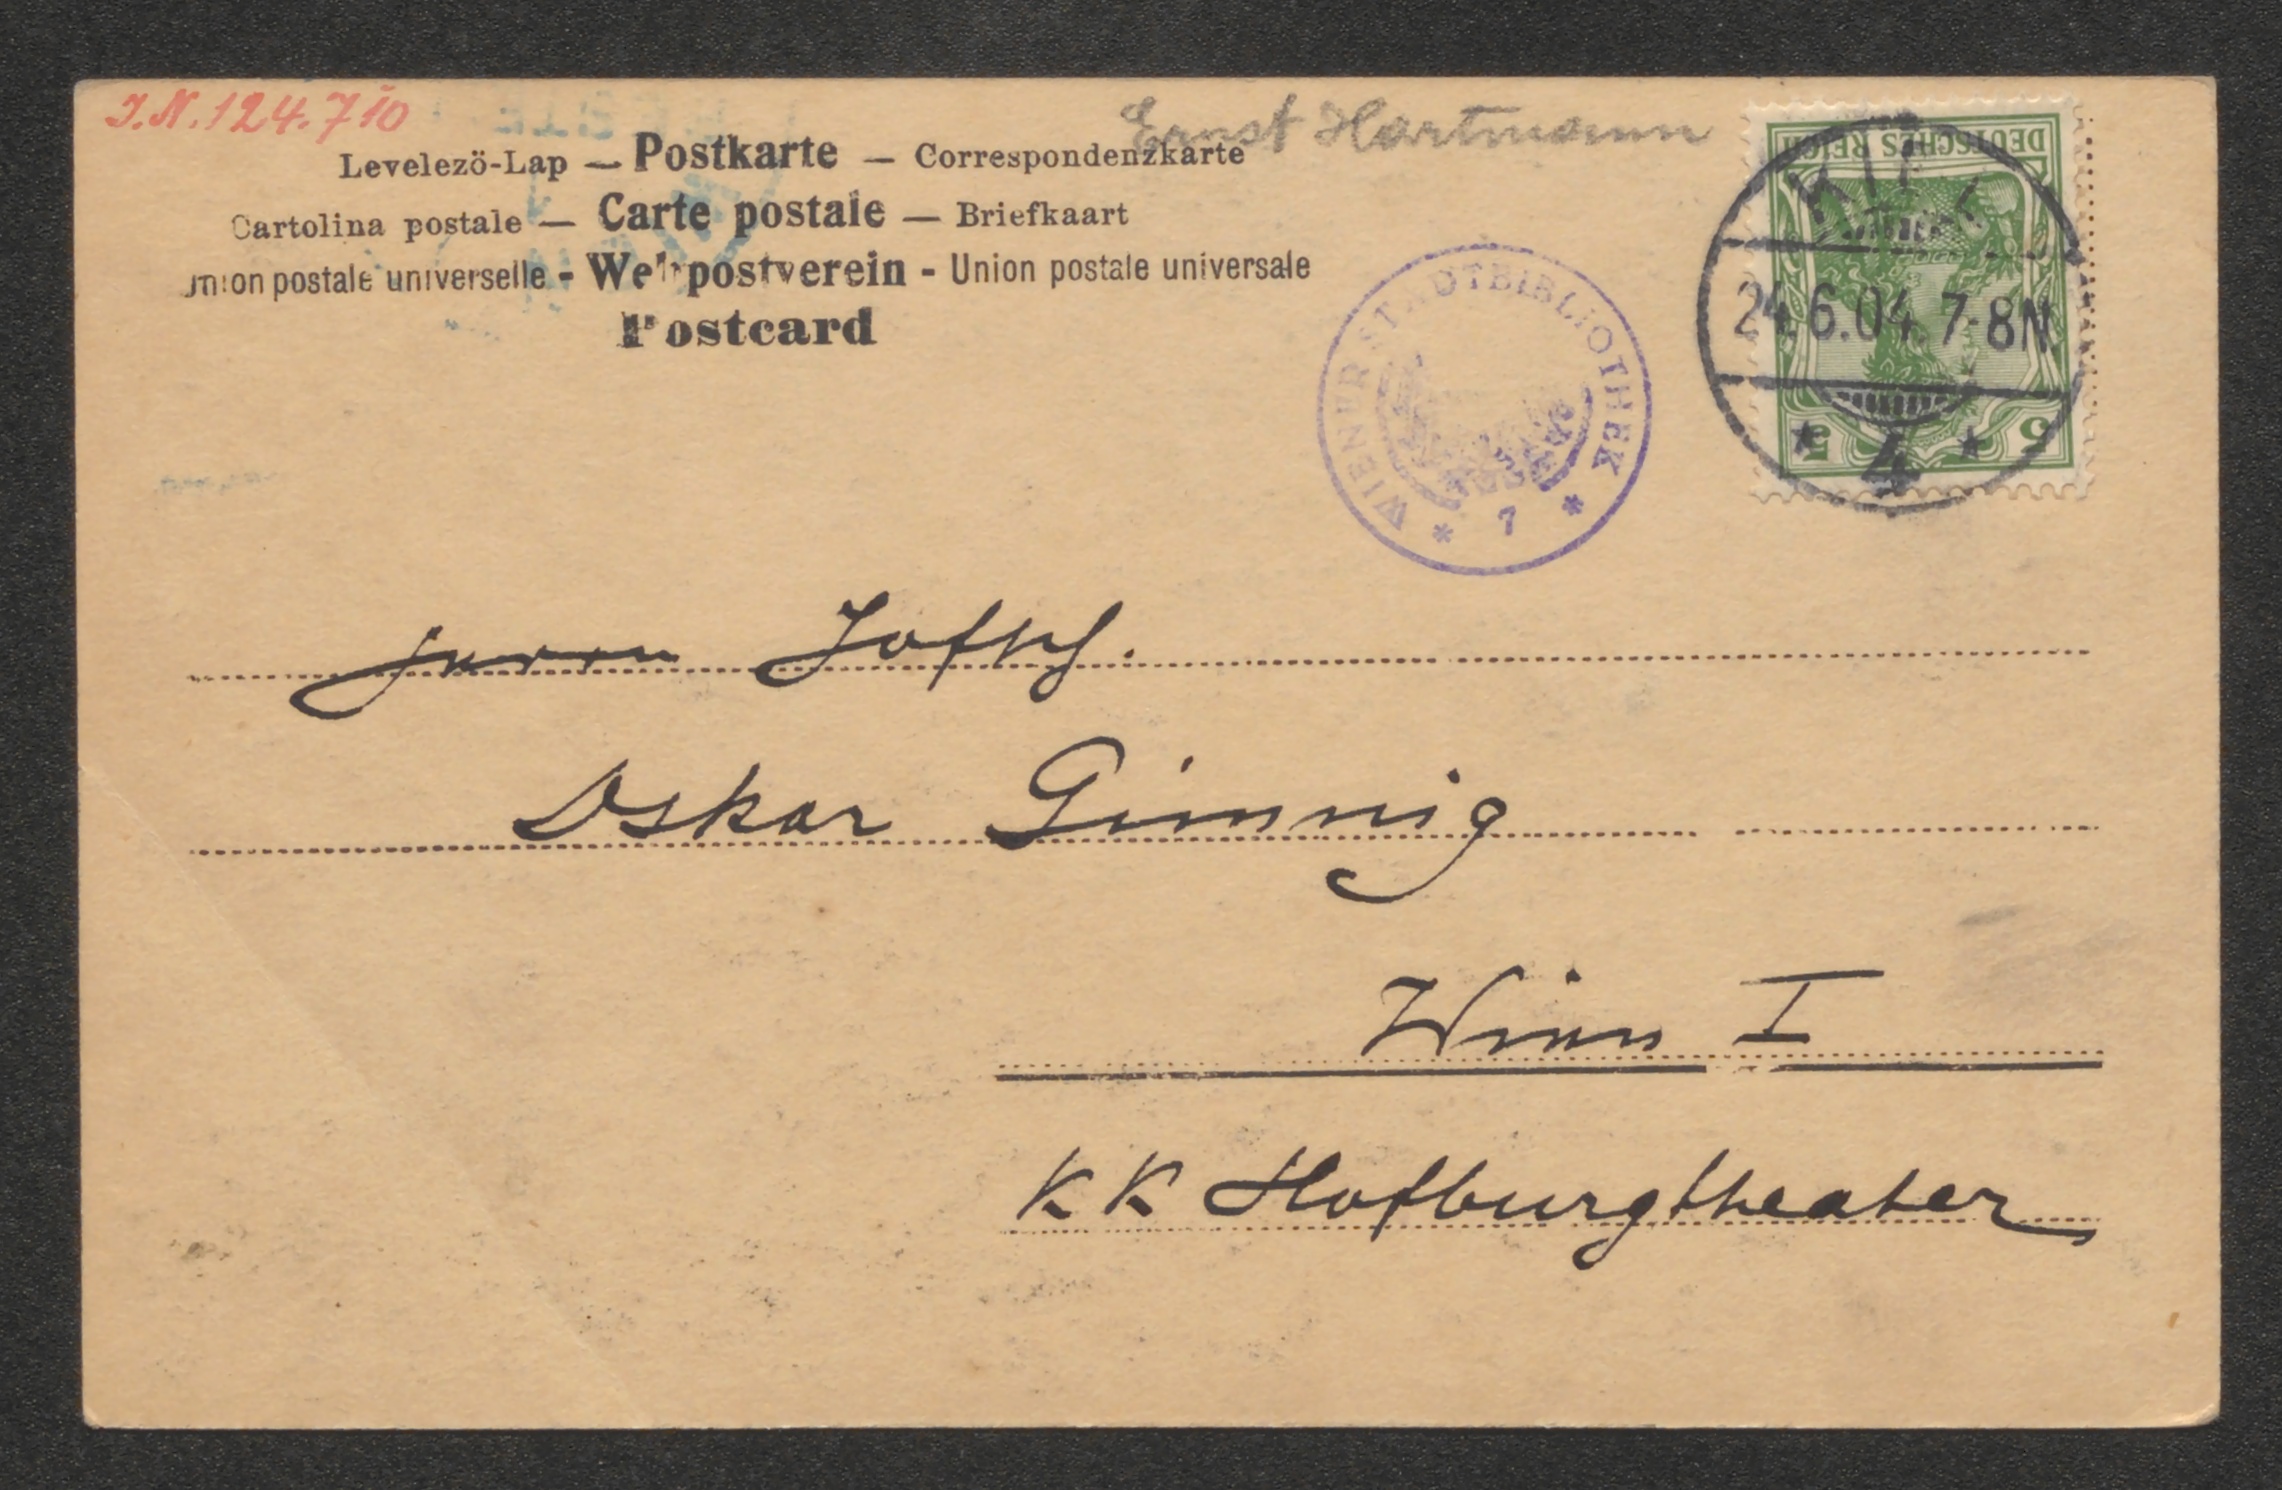 J.N. 124.710
Ernst Hartmann
Levelezö-Lap — Postkarte — Correspondenzkarte
Cartolina postale — Carte postale — Briefkaart
Union postale universelle - Weltpostverein - Union postale universale
Postcard
DEUTSCHES REICH
5 5
KIEL
24.6.04. 7-8N.
* 4 *
WIENER STADTBIBLIOTHEK
* 7 *
Herrn
Oskar Gimnig
Wien I
KK Hofburgtheater